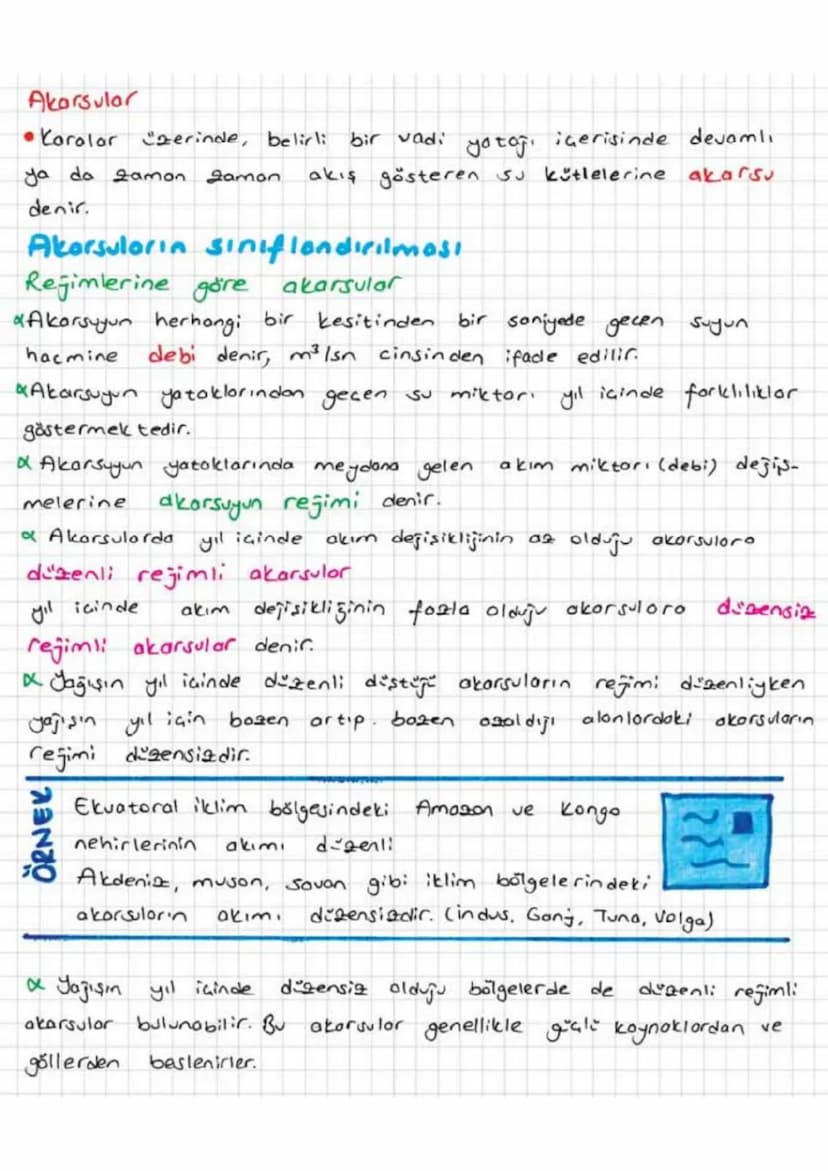 Akarsular
• Karalar üzerinde, belirli bir vadi yatağı içerisinde devamlı
ya da zaman zaman akış gösteren su kütlelerine akarsu
denir.
Akarsuların sınıflandırılması
Rejimlerine göre akarsular
Akarsuyun herhangi bir kesitinden bir saniyede geçen suyun
hacmine debi denir, m³/sn cinsinden ifade edilir.
Akarsuyun yataklarından geçen su miktarı yıl içinde farklılıklar
göstermektedir.
Akarsuyun yataklarında meydana gelen akım miktarı (debi) değiş-
melerine akarsuyun rejimi denir.
Akarsularda yıl içinde akım değişikliğinin az olduğu akarsulara
düzenli rejimli akarsular
yıl içinde akım değişikliğinin fazla olduğu akarsulara düzensiz
rejimli akarsular denir.
Yağışın yıl içinde düzenli düştüğü akarsuların rejimi düzenliyken
yağışın yıl için bazen artıp. bazen azaldığı alanlardaki akarsuların
rejimi düzensizdir.
ÖRNEK
Ekvatoral iklim bölgesindeki Amazon ve Kongo
nehirlerinin akımı düzenli
Akdeniz, muson, savan gibi iklim bölgelerindeki
akarsuların akımı düzensizdir. (indus, Ganj, Tuna, Volga)
Yağışın yıl içinde düzensiz olduğu bölgelerde de düzenli rejimli
akarsular bulunabilir. Bu akarsular genellikle güçlü kaynaklardan ve
göllerden beslenirler.